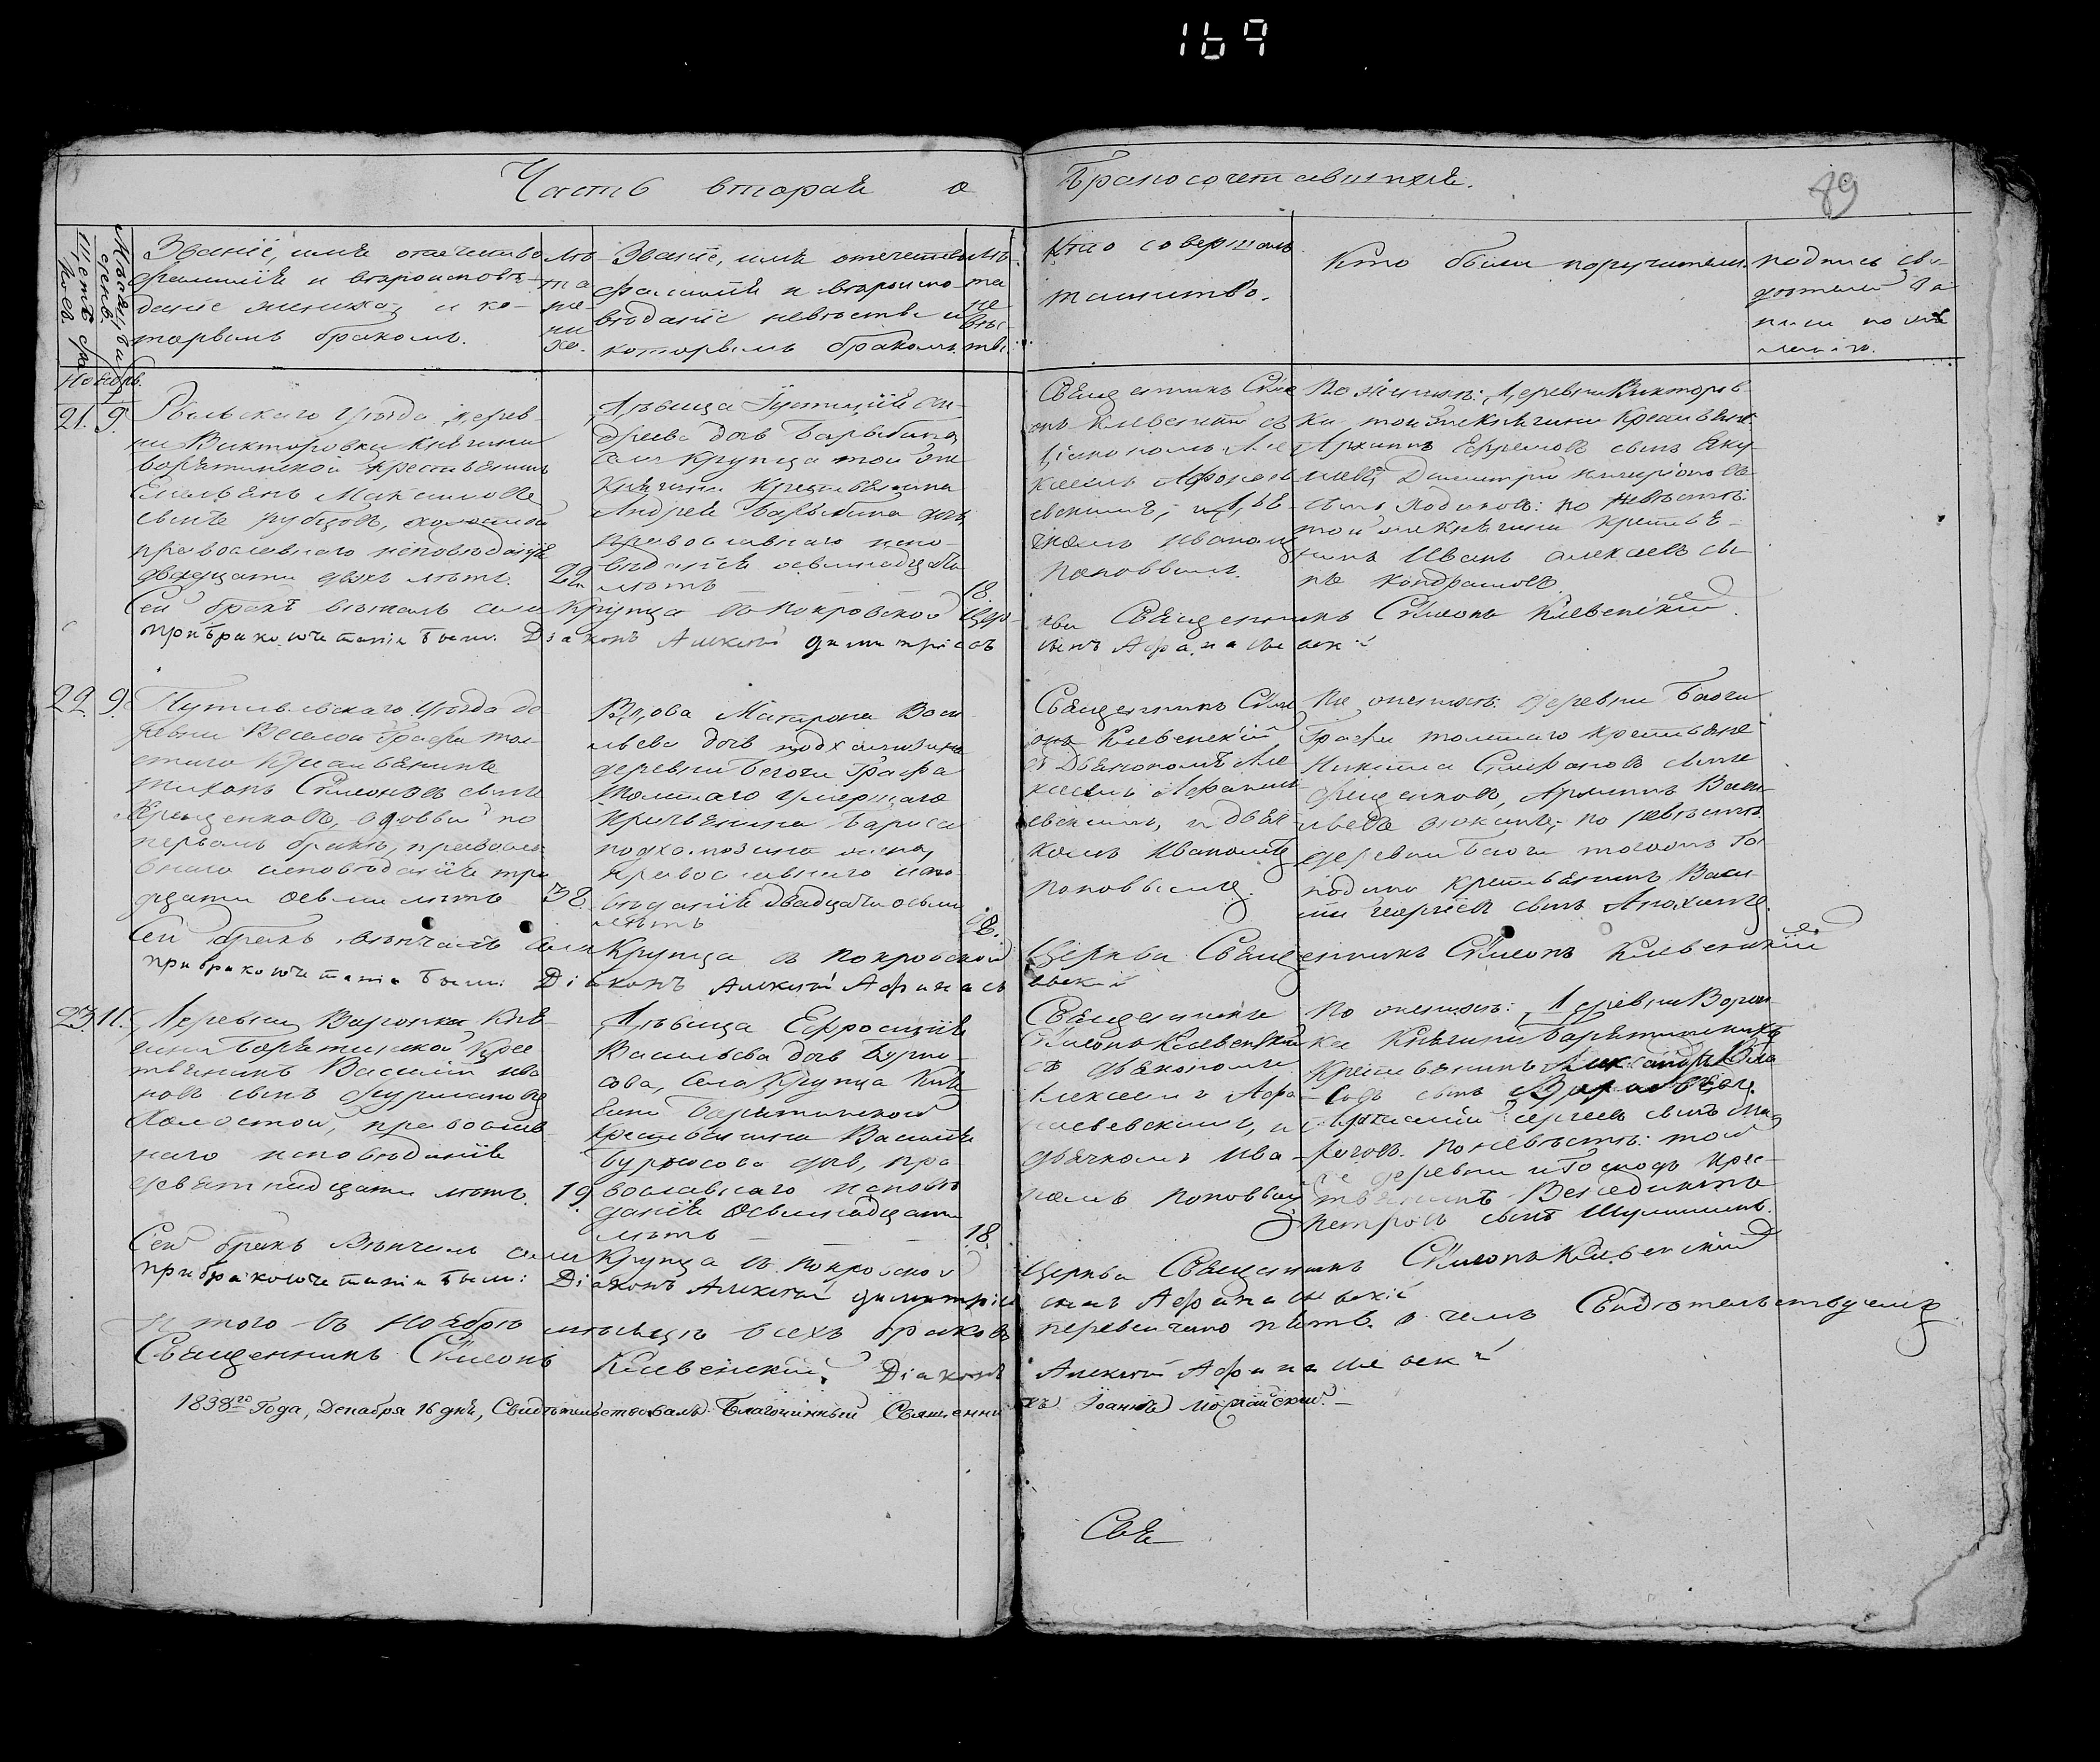 169
Часть вторая о Бракосочетавшихся.
89
Месяцъ и день.
Щетъ браковъ.
Званіе, имя отечество
фамилія и вѣроисповѣ-
даніе жениха, и ко-
торымъ бракомъ.
Лѣ-
та
же-
ни
ха.
Званіе, имя отечество
фамилія и вѣроиспо-
вѣданіе невѣсты и
которымъ бракомъ.
Лѣ-
та
не
вѣс-
ты.
Кто совершалъ
таинство.
Кто были поручители.
подпись сви-
дѣтелей за
писи по же
ланію.
Ноябрь.
21. 9.
Рыльскаго Уѣзда, дерев-
ни Викторовки Княгини
Борятинской крестьянинъ
Емельянъ Максимовъ
сынъ Рубцовъ, холостой
православнаго исповѣданія
двадцати двухъ лѣтъ.
22.
Дѣвица Гликерія Ан-
дреева дочь Барыбина
села Крупца той же
Княгини крестьянина
Андрея Барыбина дочь
православнаго испо-
вѣданія осьмнадцати
лѣтъ
18.
Священникъ Симе
онъ Клевенскій съ
Діакономъ Але
ксѣемъ Афанась
евскимъ, и Дья
чкомъ Иваномъ
Поповымъ.
По женихѣ: Деревни Викторов-
ки той же Княгини Крестьяне
Архипъ Ефремовъ сынъ
Димитрій
сынъ по невѣстѣ:
той же княгини крестья-
нинъ Иванъ Алексѣевъ сы-
нъ Кондрашовъ.
Сей бракъ вѣнчалъ села Крупца въ Покровской Цер-
кви Священникъ Симеонъ Клевенскій
при бракосочетаніи были: Діаконъ Алексѣй Димитріевъ
сынъ Афанасьевскій
22. 9.
Путивльскаго Уѣзда де
ревни Веселой Графа тол-
стаго Крестьянинъ
Тихонъ Симеоновъ сынъ
Крещенковъ, вдовый по
первомъ бракѣ, правосла-
внаго исповѣданія три
дцати осьми лѣтъ
38.
Вдова Матрона Васи
льева дочь Подхалюзина
деревни Бегочи Графа
Толстаго умершаго
крестьянина Бориса
Подхалюзина жена,
православнаго испо-
вѣданія двадцати осьми
лѣтъ
28.
Священникъ Симе
онъ Клевенскій
съ Дьякономъ Але
ксѣемъ Афанась
евскимъ, и дьяч
комъ Иваномъ
Поповымъ.
По женихѣ: деревни Бегочи
Графа толстаго крестьяне
Никита Стефановъ сынъ
Васи
льевъ по невѣстѣ
деревни Бегочи того жъ Го
сподина крестьянинъ Васи
лій Георгіевъ сынъ
Сей бракъ вѣнчалъ села Крупца въ Покровской Церкви Священникъ Симеонъ Клевенскій
при бракосочетаніи были: Діаконъ Алексѣй Афанасьевскій
23. 11.
Деревни Воронка Кня-
гини Борятинской Крес
тьянинъ Василій Ива
новъ сынъ Фурмановъ
холостой, православ-
наго исповѣданія
девятнадцати лѣтъ.
19.
Дѣвица Ефросинія
Васильева дочь Бурно-
сова, села Крупца Кня
гини Борятинской
Крестьянина Василія
Бурносова дочь, пра-
вославнаго исповѣ
данія осьмнадцати
лѣтъ
18.
Священникъ
Симеонъ Клевенскій
съ дьякономъ
Алексѣемъ Афа-
насьевскимъ, и
дьячкомъ Ива-
номъ Поповымъ
По женихѣ: Деревни Ворон-
ки Княгини Борятинской
Крестьянинъ Александръ Вла
совъ сынъ
Сергѣевъ сынъ
по невѣстѣ: той
же деревни и Госпожи крес-
тьянинъ Венедиктъ
Петровъ сынъ
Сей бракъ вѣнчалъ села Крупца въ Покровской Церкви Священникъ Симеонъ Клевенскій
при бракосочетаніи были: Діаконъ Алексѣй Димитріевъ сынъ Афанасьевскій
Итого въ Ноябрѣ мѣсяцѣ всехъ браковъ перевенчано пять. в чемъ Свидѣтельствуемъ
Священникъ Симеонъ Клевенскій, Діаконъ Алексѣй Афанасьевскій
1838го Года, Декабря 16 дня, Свидѣтельствовалъ Благочинный Священникъ Іоаннъ
Свя